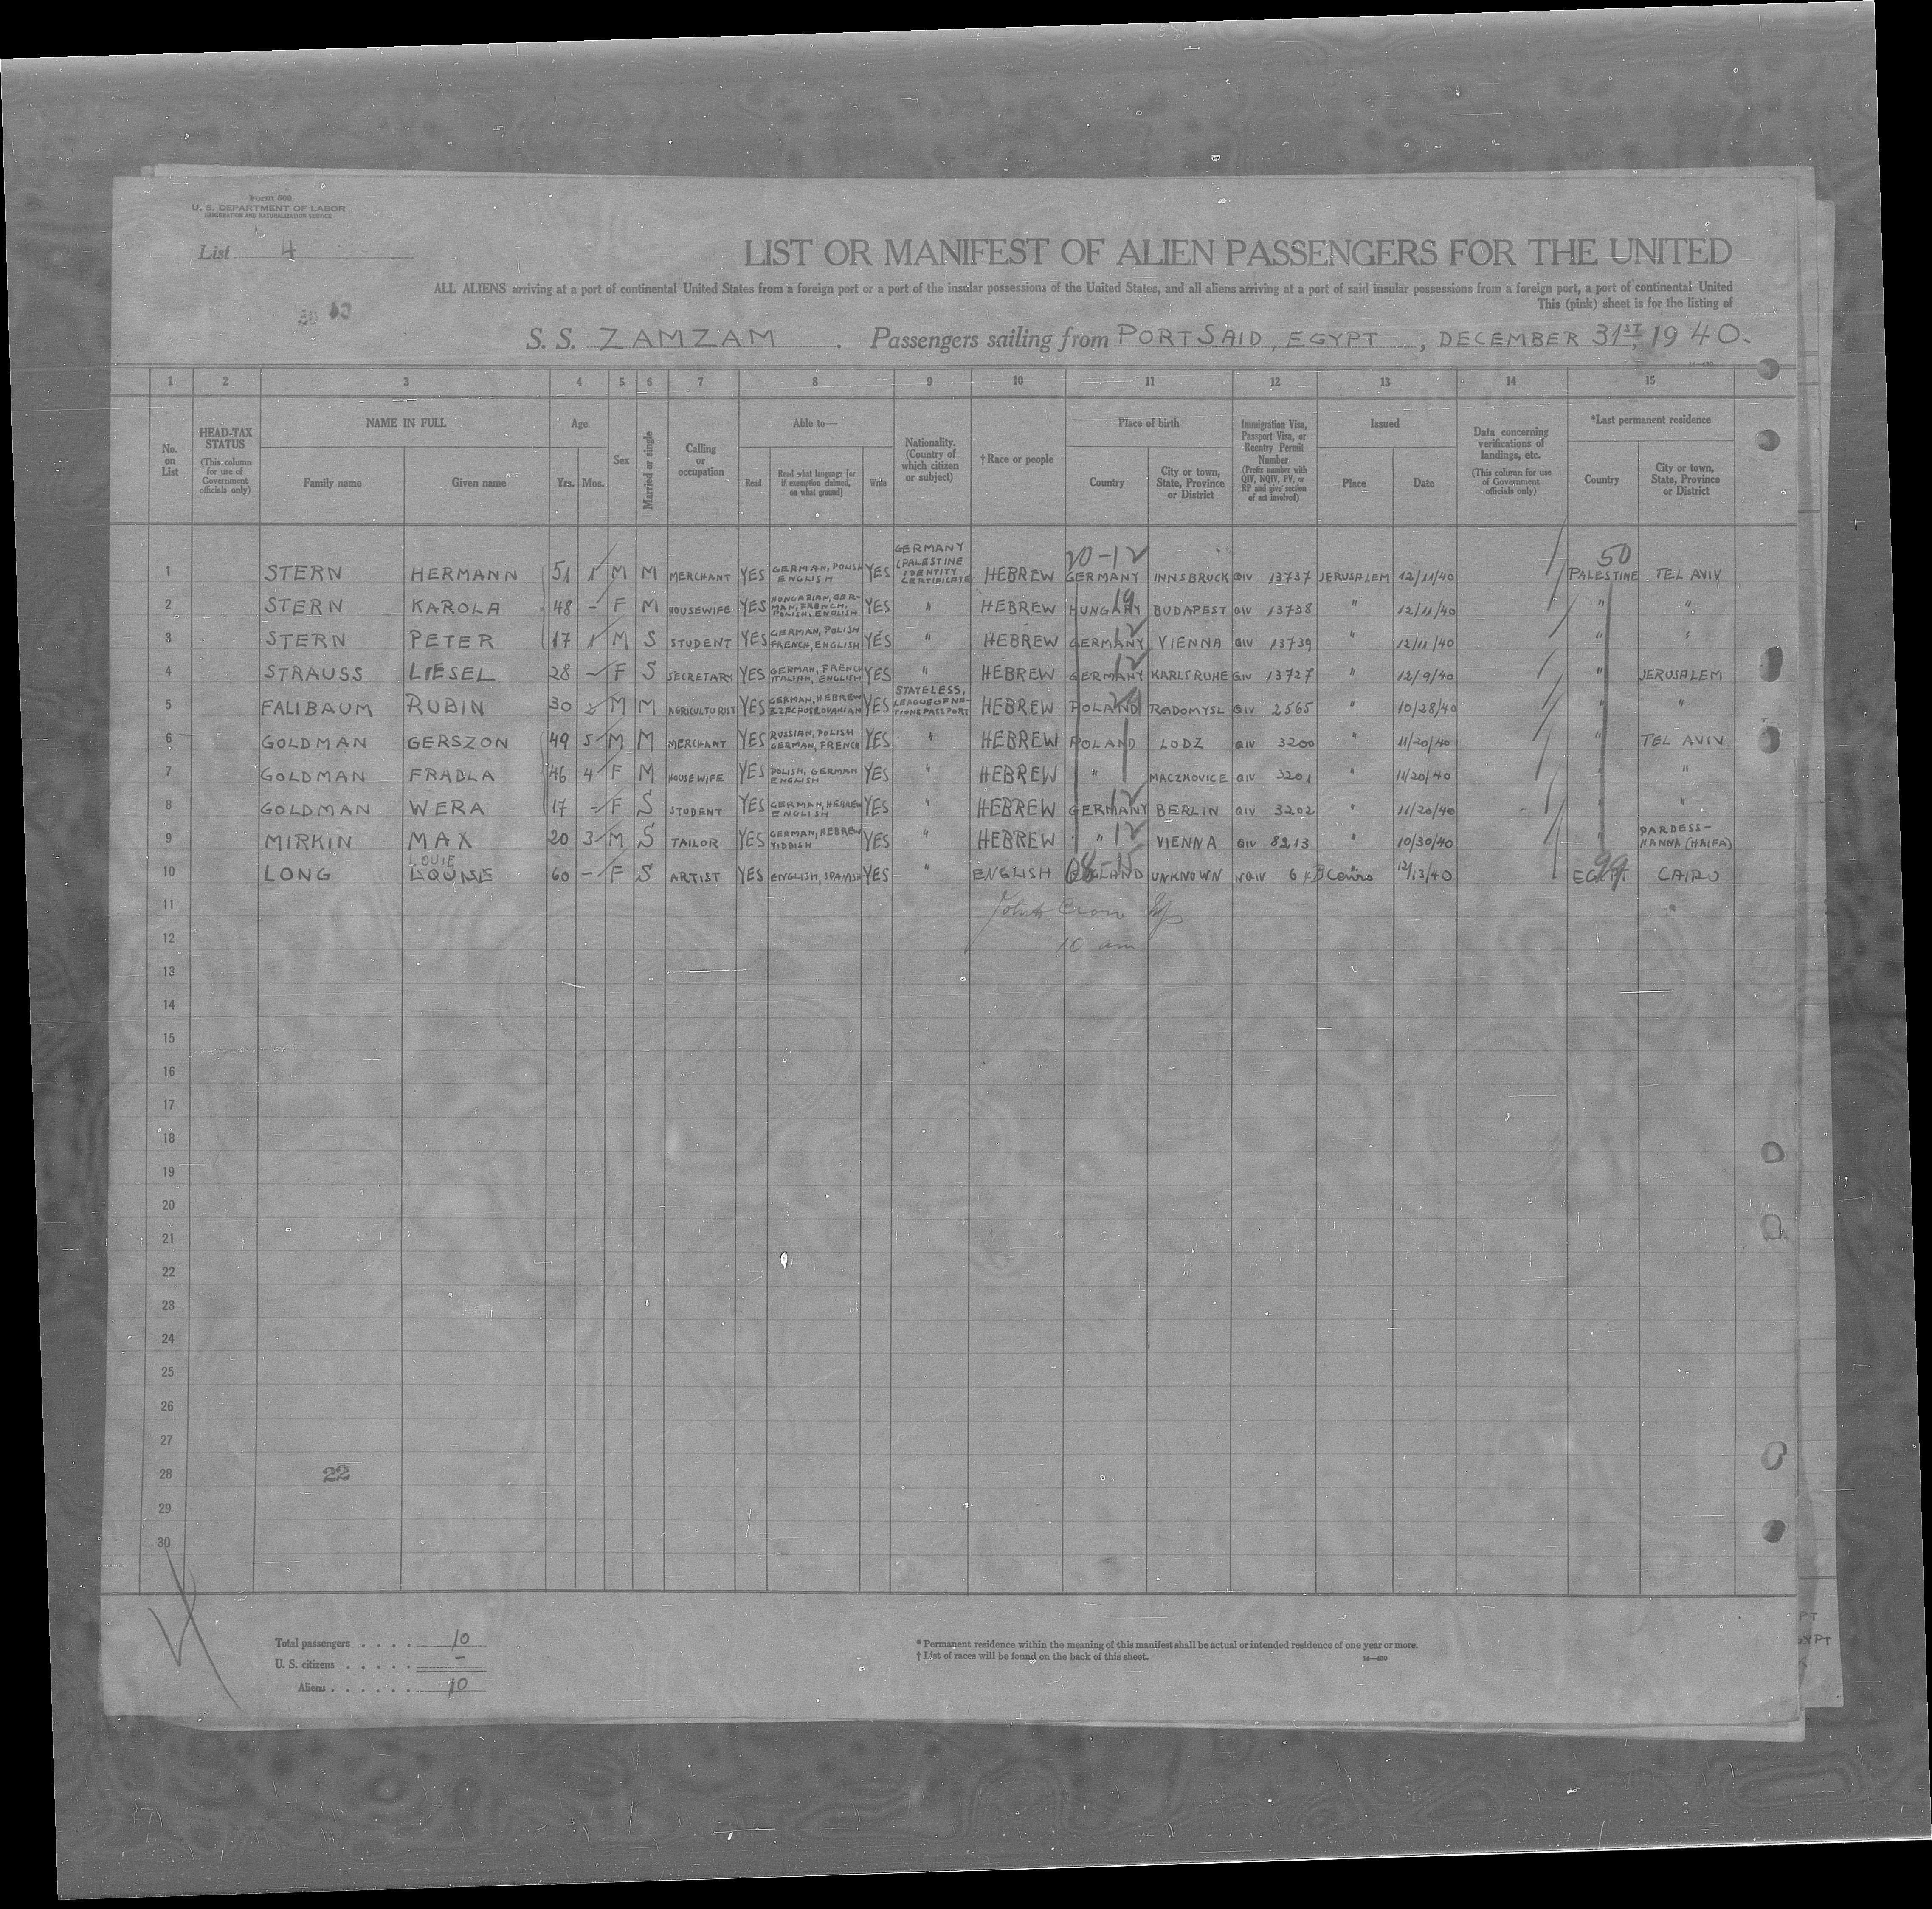 Form 500
U. S. DEPARTMENT OF LABOR
IMMIGRATION AND NATURALIZATION SERVICE
List 4
LIST OR MANIFEST OF ALIEN PASSENGERS FOR THE UNITED
ALL ALIENS arriving at a port of continental United States from a foreign port or a port of the insular possessions of the United States, and all aliens arriving at a port of said insular possessions from a foreign port, a port of continental United
This (pink) sheet is for the listing of
S. S. ZAMZAM . Passengers sailing from PORT SAID, EGYPT, DECEMBER 31ST, 1940.
1 2 3 4 5 6 7 8 9 10 11 12 13 14 15
No. on List
HEAD-TAX STATUS (This column for use of Government officials only)
NAME IN FULL Family name Given name
Age Yrs. Mos.
Sex
Married or single
Calling or occupation
Able to— Read Read what language [or if exemption claimed, on what ground] Write
Nationality. (Country of which citizen or subject)
†Race or people
Place of birth Country City or town, State, Province or District
Immigration Visa, Passport Visa, or Reentry Permit Number (Prefix number with QIV, NQIV, PV, or RP and give section of act involved)
Issued Place Date
Data concerning verifications of landings, etc. (This column for use of Government officials only)
*Last permanent residence Country City or town, State, Province or District
20-12 50
1 STERN HERMANN 51 1 M M MERCHANT YES GERMAN, POLISH ENGLISH YES GERMANY (PALESTINE IDENTITY CERTIFICATE HEBREW GERMANY INNSBRUCK QIV 13737 JERUSALEM 12/11/40 PALESTINE TEL AVIV
2 STERN KAROLA 48 - F M HOUSEWIFE YES HUNGARIAN, GERMAN, FRENCH, POLISH, ENGLISH YES " HEBREW HUNGARY 19 BUDAPEST QIV 13738 " 12/11/40 " "
3 STERN PETER 17 1 M S STUDENT YES GERMAN, POLISH FRENCH, ENGLISH YES " HEBREW GERMANY 12 VIENNA QIV 13739 " 12/11/40 " "
4 STRAUSS LIESEL 28 - F S SECRETARY YES GERMAN, FRENCH ITALIAN, ENGLISH YES " HEBREW GERMANY 12 KARLSRUHE QIV 13727 " 12/9/40 " JERUSALEM
5 FALIBAUM RUBIN 30 2 M M AGRICULTURIST YES GERMAN, HEBREW CZECHOSLOVAKIAN YES STATELESS, LEAGUE OF NATIONS PASSPORT HEBREW POLAND RADOMYSL QIV 2565 " 10/28/40 " "
6 GOLDMAN GERSZON 49 5 M M MERCHANT YES RUSSIAN, POLISH GERMAN, FRENCH YES " HEBREW POLAND LODZ QIV 3200 " 11/20/40 " TEL AVIV
7 GOLDMAN FRADLA 46 4 F M HOUSEWIFE YES POLISH, GERMAN ENGLISH YES " HEBREW " MACZKOVICE QIV 3201 " 11/20/40 " "
8 GOLDMAN WERA 17 - F S STUDENT YES GERMAN, HEBREW ENGLISH YES " HEBREW GERMANY 12 BERLIN QIV 3202 " 11/20/40 " "
9 MIRKIN MAX 20 3 M S TAILOR YES GERMAN, HEBREW YIDDISH YES " HEBREW " 12 VIENNA QIV 8213 " 10/30/40 " PARDESS-HANNA (HAIFA)
10 LONG LOUIE LOUISE 60 - F S ARTIST YES ENGLISH, SPANISH YES " ENGLISH ENGLAND UNKNOWN NQIV Cairo 12/13/40 EGYPT 99 CAIRO
11
12 10 am
13
14
15
16
17
18
19
20
21
22
23
24
25
26
27
28 22
29
30
Total passengers . . . . 10
U. S. citizens . . . . . -
Aliens . . . . . . 10
* Permanent residence within the meaning of this manifest shall be actual or intended residence of one year or more.
† List of races will be found on the back of this sheet.